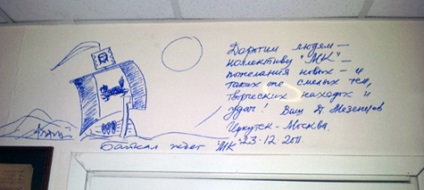 Дорогим людям –
коллективу "МК" –
пожелания новых – и
таких же смелых тем,
творческих находок и
удач! Ваш Д Мезенцев
Иркутск – Москва.
23-12 2011
Байкал ждет "МК"